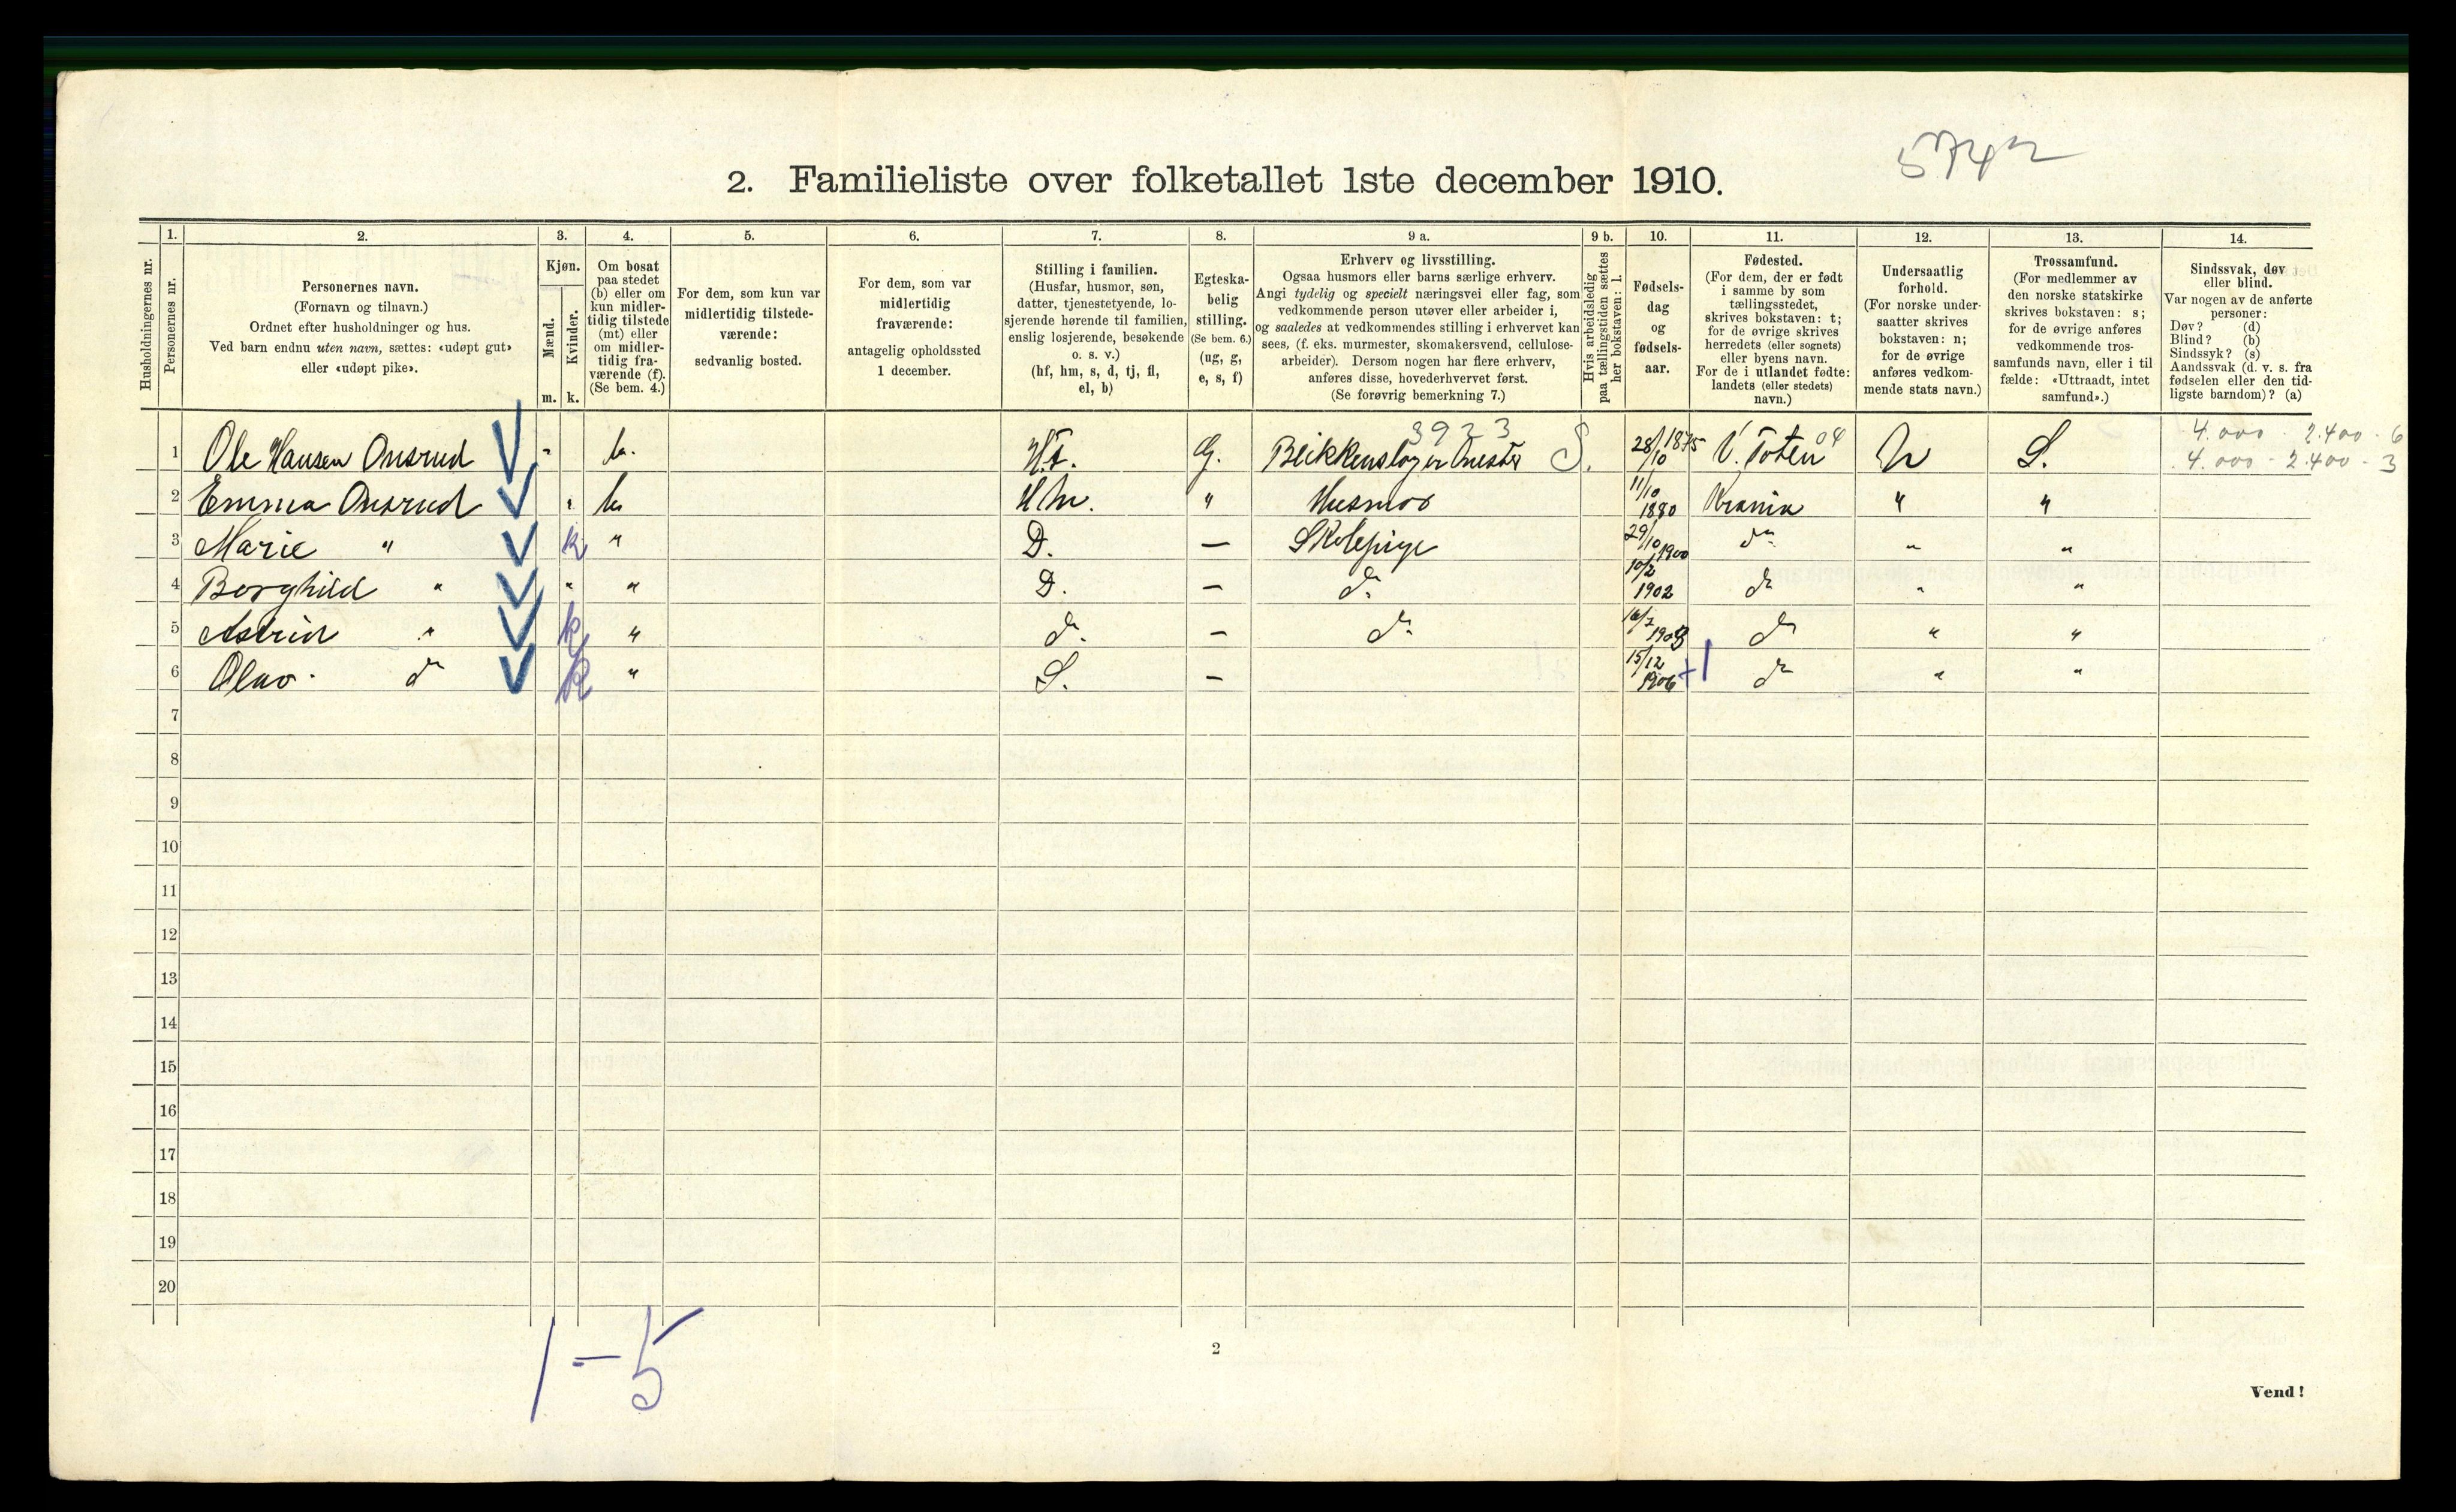 5742
2. Familieliste over folketallet 1ste december 1910.
1. 2. 3. 4. 5. 6. 7. 8. 9 a. 9 b. 10. 11. 12. 13. 14.
Husholdningernes nr.
Personernes nr.
Personernes navn.
(Fornavn og tilnavn.)
Ordnet efter husholdninger og hus.
Ved barn endnu uten navn, sættes: «udøpt gut»
eller «udøpt pike».
Kjøn.
Mænd.
Kvinder.
m. k.
Om bosat
paa stedet
(b) eller om
kun midler-
tidig tilstede
(mt) eller
om midler-
tidig fra-
værende (f).
(Se bem. 4.)
For dem, som kun var
midlertidig tilstede-
værende:
sedvanlig bosted.
For dem, som var
midlertidig
fraværende:
antagelig opholdssted
1 december.
Stilling i familien.
(Husfar, husmor, søn,
datter, tjenestetyende, lo-
sjerende hørende til familien,
enslig losjerende, besøkende
o. s. v.)
(hf, hm, s, d, tj, fl,
el, b)
Egteska-
belig
stilling.
(Se bem. 6.)
(ug, g,
e, s, f)
Erhverv og livsstilling.
Ogsaa husmors eller barns særlige erhverv.
Angi tydelig og specielt næringsvei eller fag, som
vedkommende person utøver eller arbeider i,
og saaledes at vedkommendes stilling i erhvervet kan
sees, (f. eks. murmester, skomakersvend, cellulose-
arbeider). Dersom nogen har flere erhverv,
anføres disse, hovederhvervet først.
(Se forøvrig bemerkning 7.)
Hvis arbeidsledig
paa tællingstiden sættes
her bokstaven: l.
Fødsels-
dag
og
fødsels-
aar.
Fødested.
(For dem, der er født
i samme by som
tællingsstedet,
skrives bokstaven: t;
for de øvrige skrives
herredets (eller sognets)
eller byens navn.
For de i utlandet fødte:
landets (eller stedets)
navn.)
Undersaatlig
forhold.
(For norske under-
saatter skrives
bokstaven: n;
for de øvrige
anføres vedkom-
mende stats navn.)
Trossamfund.
(For medlemmer av
den norske statskirke
skrives bokstaven: s;
for de øvrige anføres
vedkommende tros-
samfunds navn, eller i til
fælde: «Uttraadt, intet
samfund».)
Sindssvak, døv
eller blind.
Var nogen av de anførte
personer:
Døv? (d)
Blind? (b)
Sindssyk? (s)
Aandssvak (d. v. s. fra
fødselen eller den tid-
ligste barndom)? (a)
3923 04 4.000 - 2.400 - 6
1 Ole Hansen Onsrud " b. H.F. G. S. 28/10 1875 V. Toten N S. 4.000 - 2.400 - 3
2 Emma Onsrud " b H.M. " Husmor 11/10 1880 Krania " "
3 Marie " k " D. — Skolepige 29/10 1900 do " "
4 Borghild " " " D. — do 10/2 1902 do " "
5 Astrid " k " d. — do 16/7 1903 do " "
6 Olav do k " S. — 15/12 1906 +1 do " "
7
8
9
10
11
12
13
14
15
16
17
18
19
20
1-5
2
Vend!